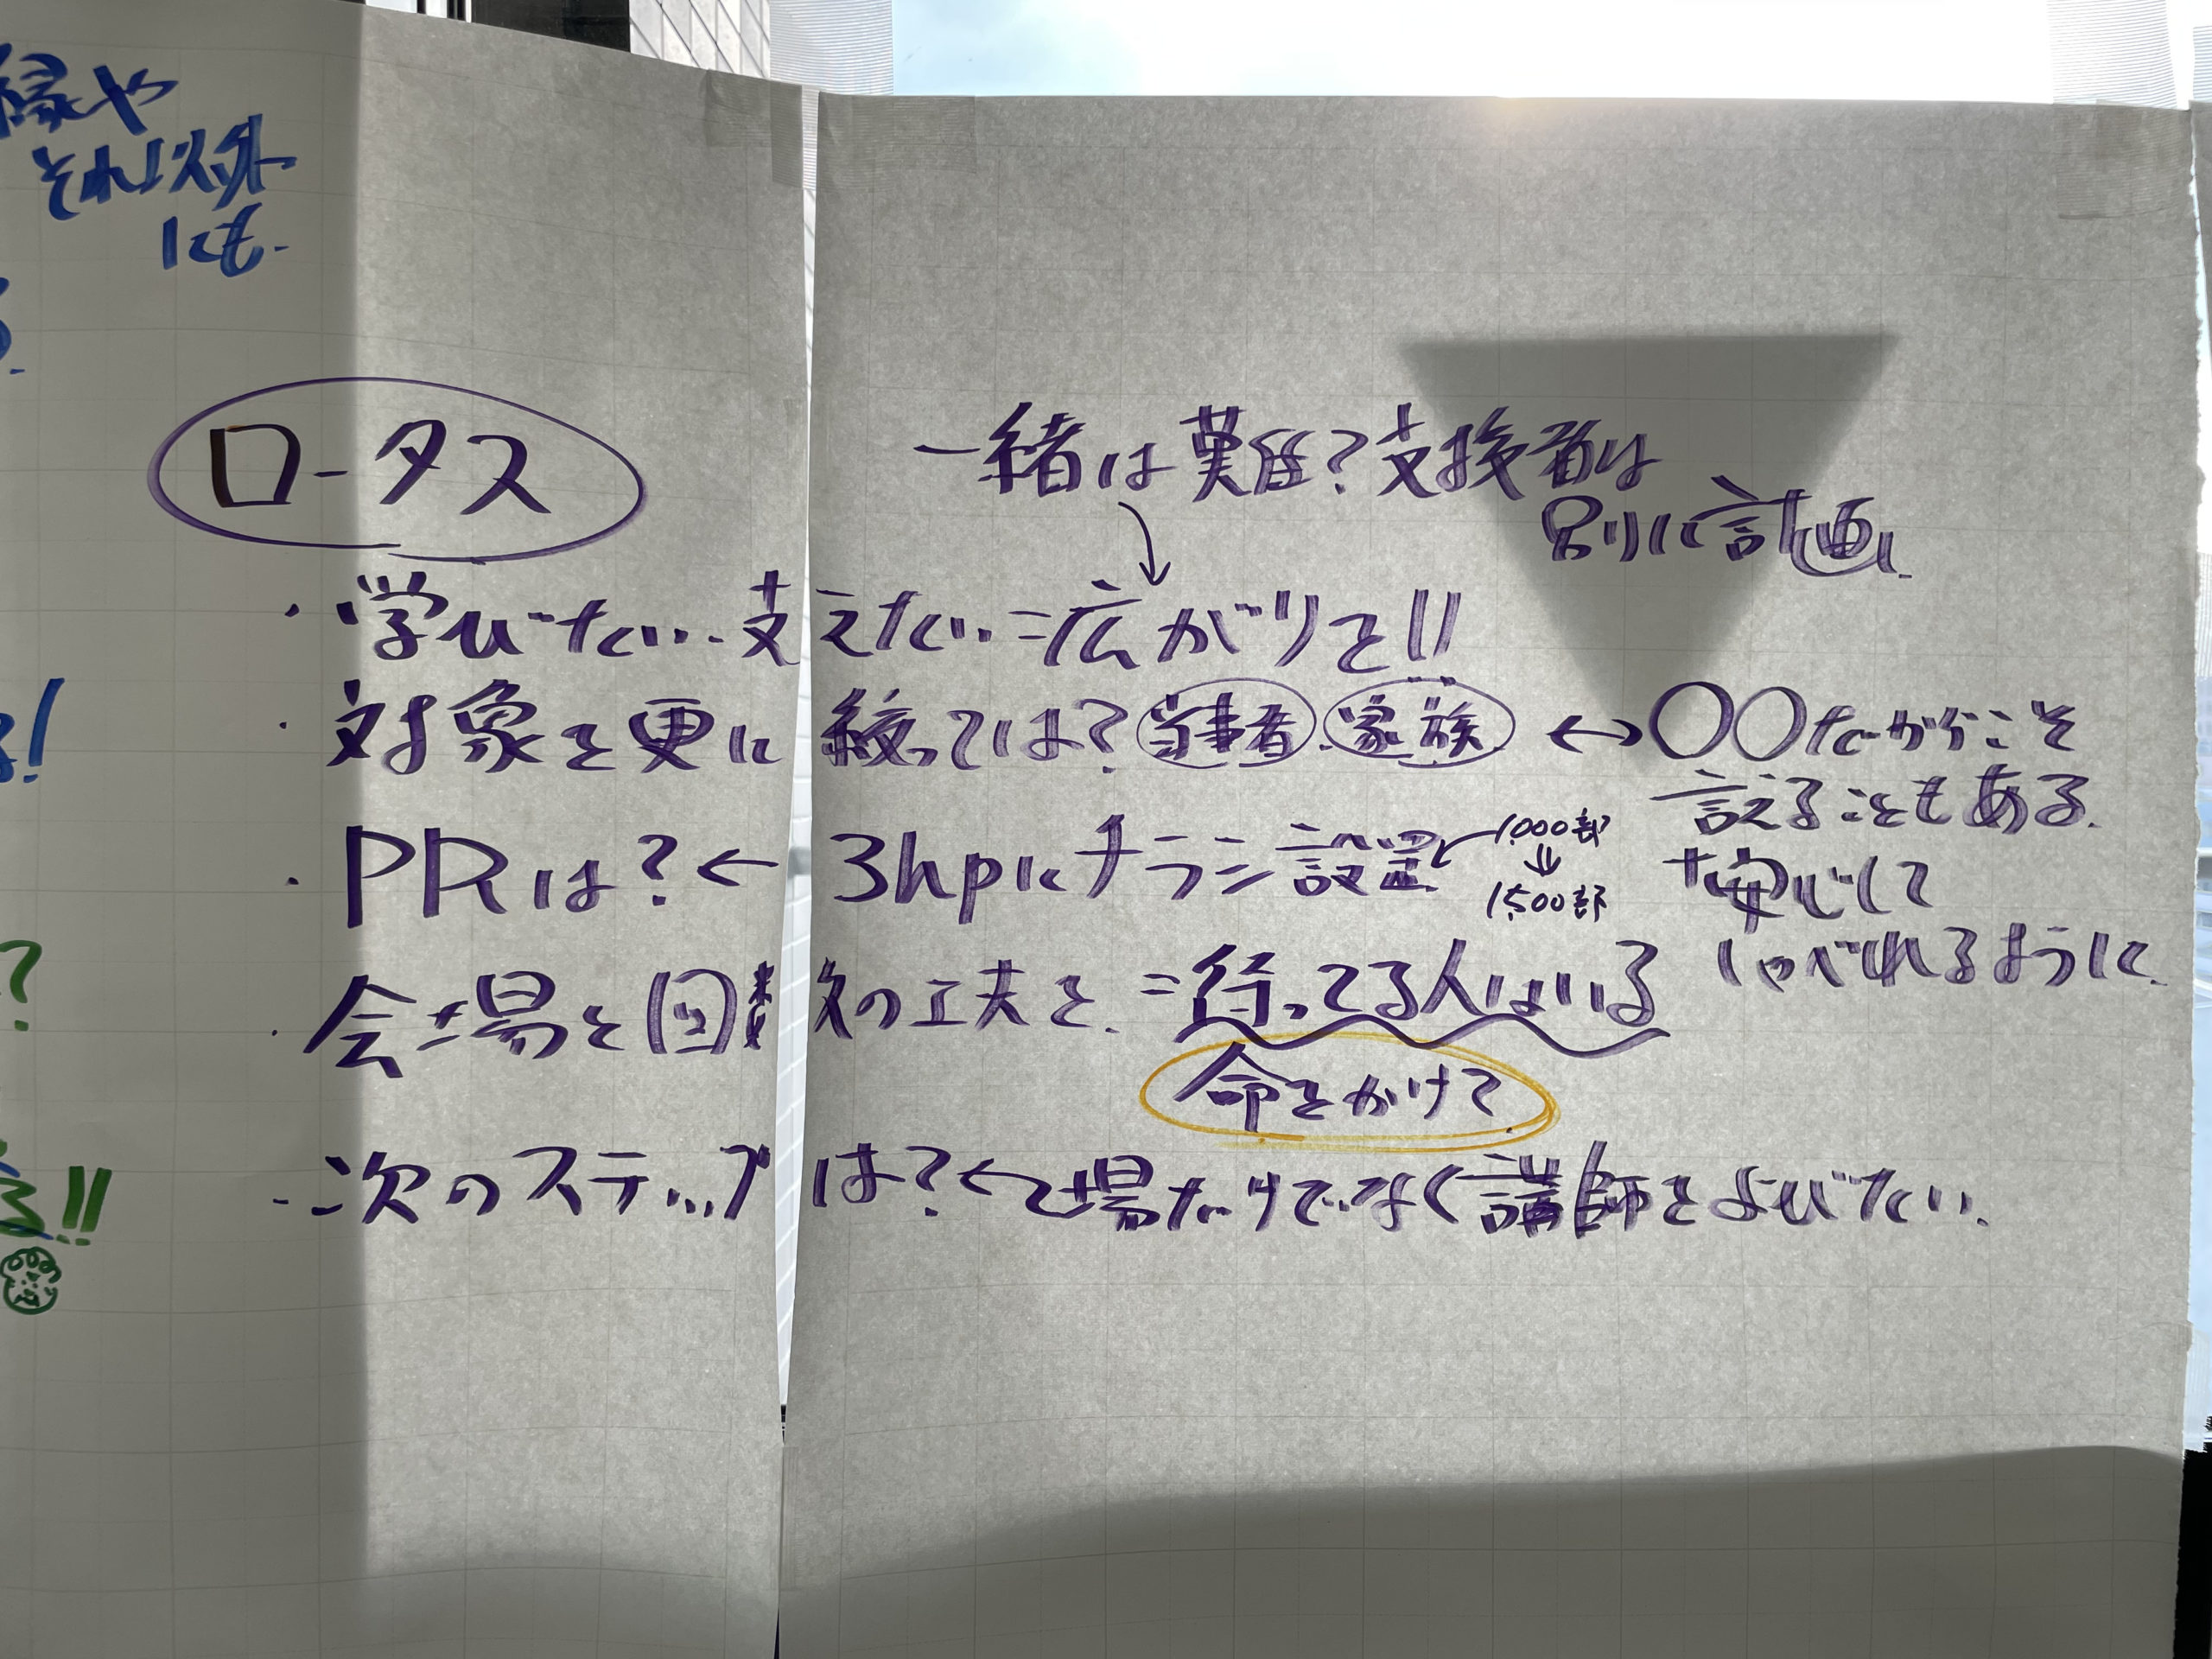 縁や
それ以外
にも.
ロータス
一緒は難？支援者は
別に計画.
・学びたい・支えたい＝広がりを!!
・対象を更に絞っては？当事者 家族 ↔ ○○だからこそ
言えることもある.
安心して
しゃべれるように.
・PRは？← 3hpにチラシ設置 ← 1,000部
⇓
1,500部
・会場を図 の工夫を. ＝行ってる人はいる
命をかけて
・次のステップは？← 場だけでなく講師をよびたい.